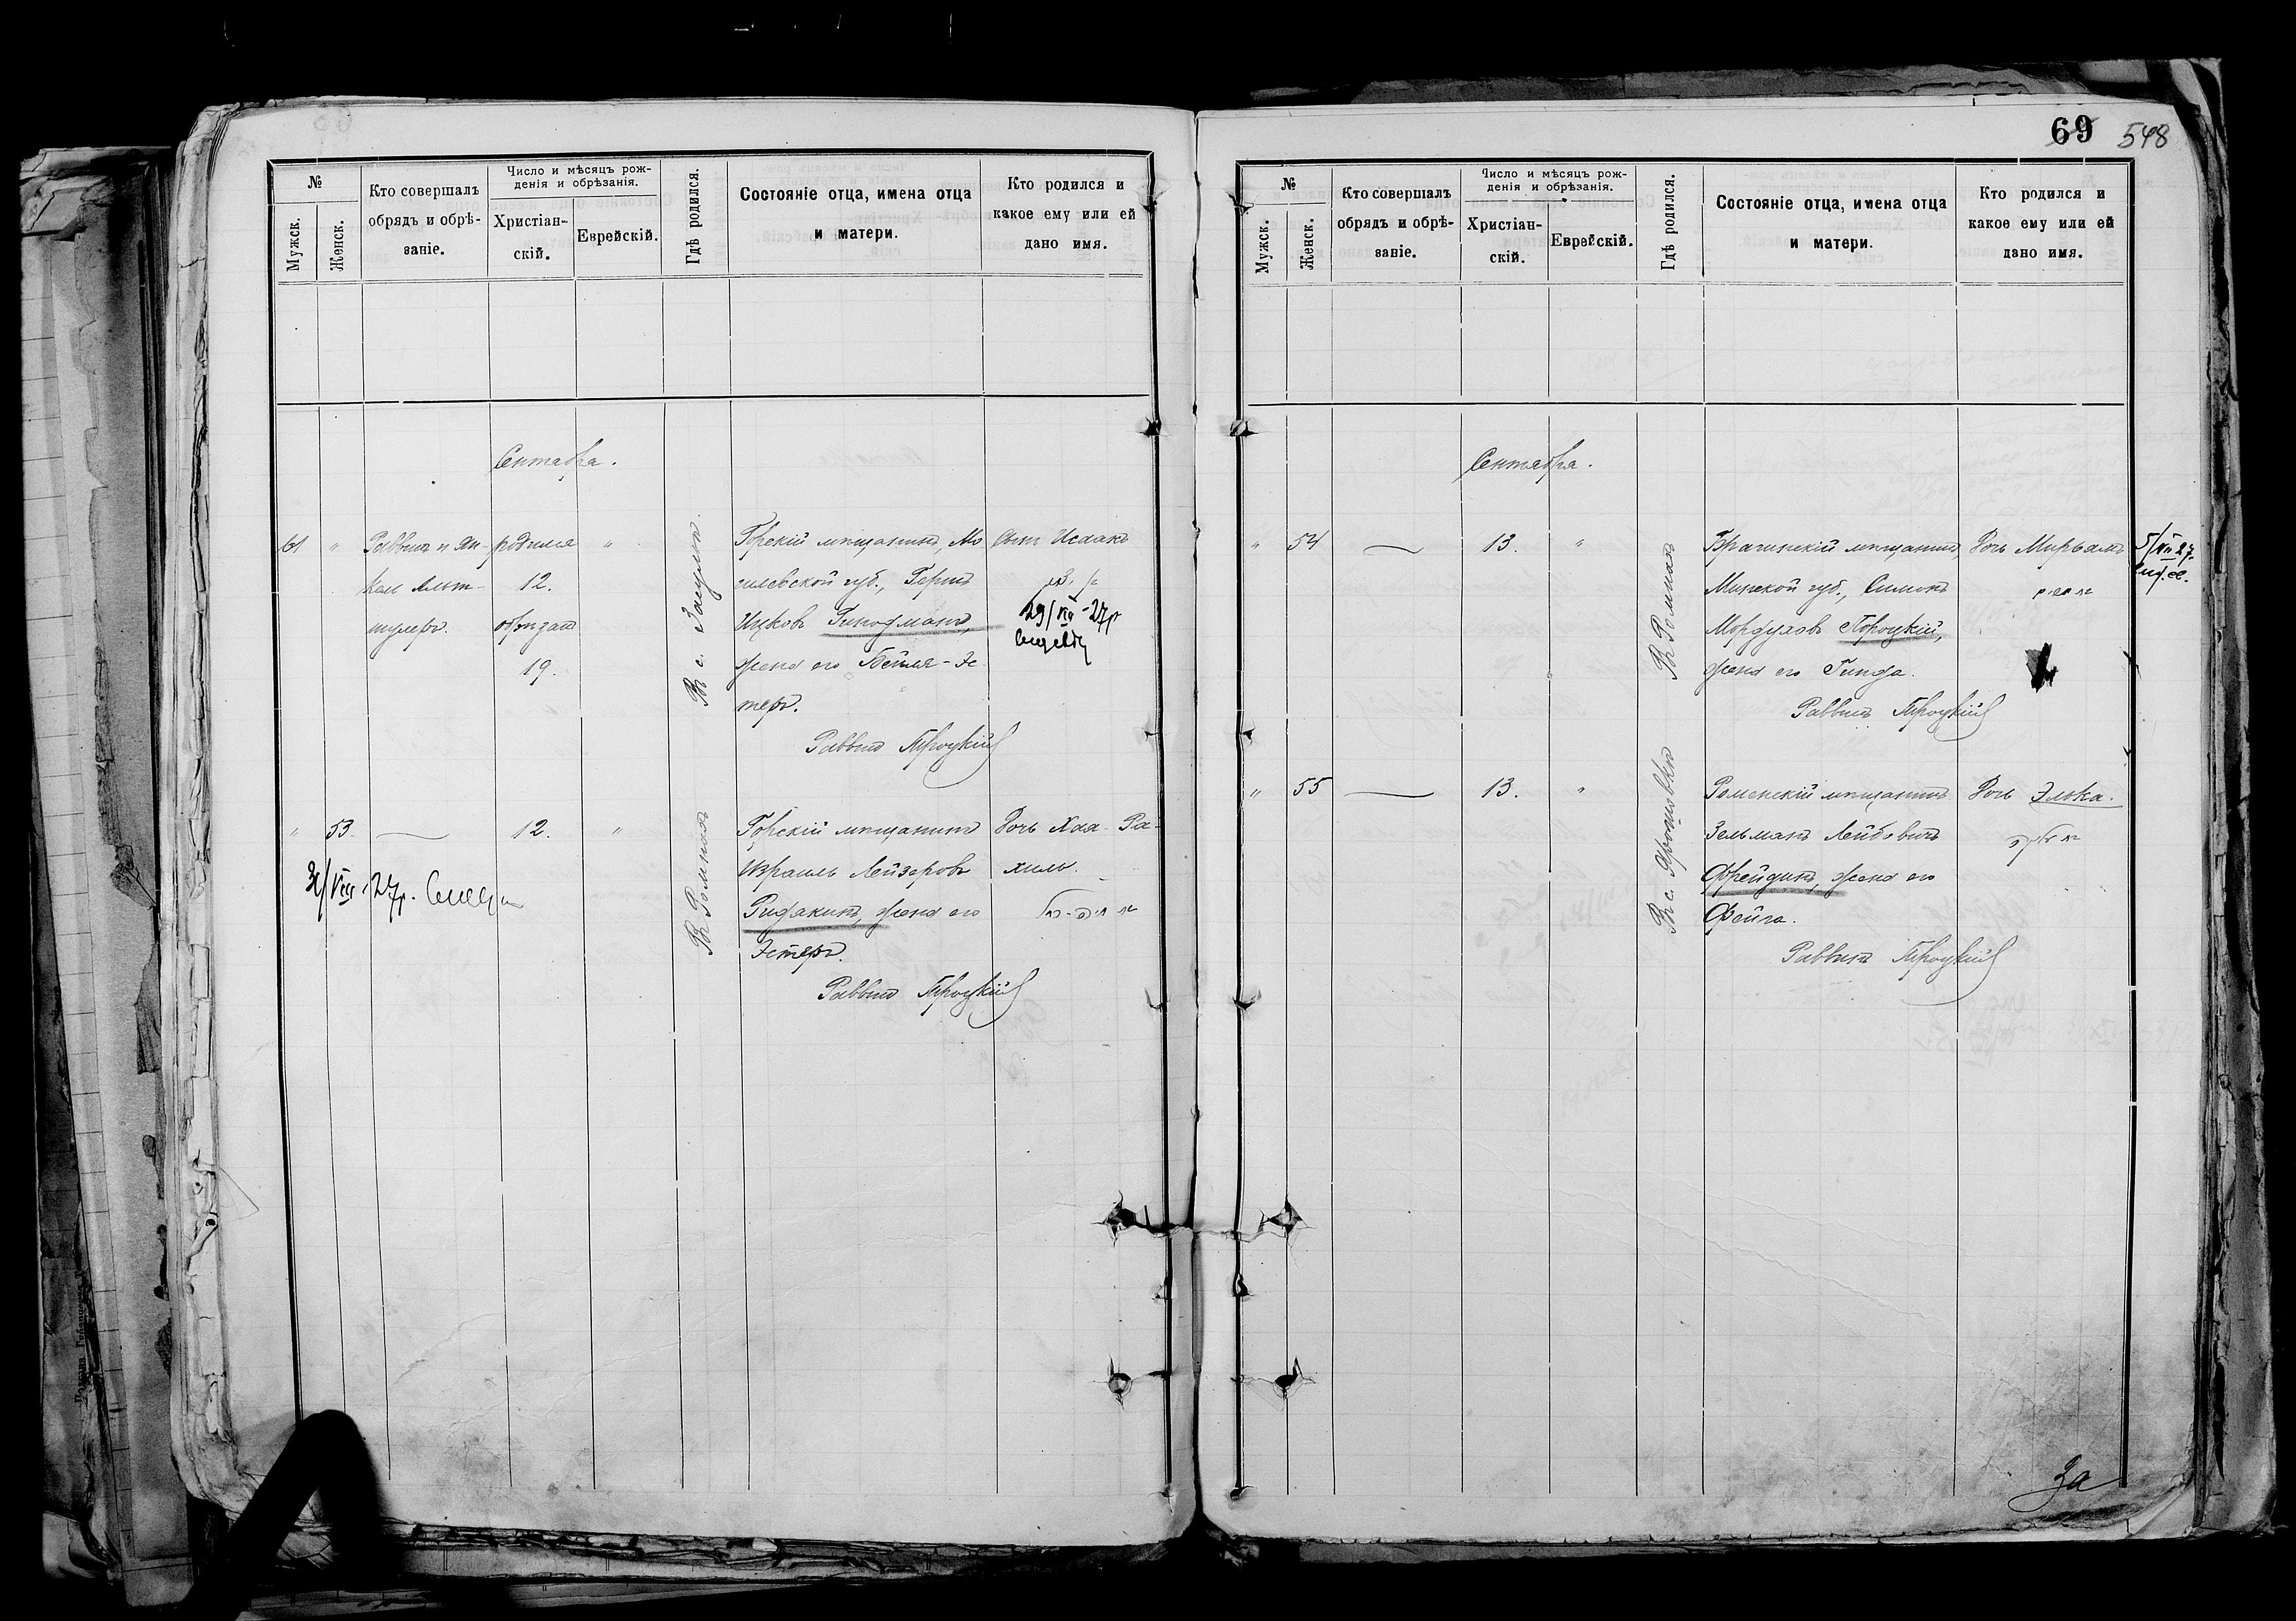 №
Мужск.
Женск.
Кто совершалъ
обрядъ и обрѣ-
заніе.
Число и мѣсяцъ рож-
денія и обрѣзанія.
Христіан-
скій.
Еврейскій.
Гдѣ родился.
Состояніе отца, имена отца
и матери.
Кто родился и
какое ему или ей
дано имя.
Сентября.
61
"
Раввинъ и Ян-
кель Альт-
шулеръ.
родился
12.
обрѣзанъ
19.
"
Въ с. Засульи.
Горскій мѣщанинъ, Мо
гилевской губ., Гершъ
Ицковъ
жена его Бейля-Эс
теръ.
Раввинъ Троцкій
Сынъ Исаакъ
29/VIII-27г
"
53.
12.
"
Въ Ромнахъ
Горскій мѣщанинъ
Израиль Лейзеровъ
жена его
Эстеръ.
Раввинъ Троцкій
Дочь Хая-Ра-
хиль.
VIII 27г.
69
548
№
Мужск.
Женск.
Кто совершалъ
обрядъ и обрѣ-
заніе.
Число и мѣсяцъ рож-
денія и обрѣзанія.
Христіан-
скій.
Еврейскій.
Гдѣ родился.
Состояніе отца, имена отца
и матери.
Кто родился и
какое ему или ей
дано имя.
Сентября.
"
54
13.
"
Въ Ромнахъ
Брагинскій мѣщанинъ,
Минской губ., Симонъ
Мордуховъ
жена его Гинда.
Раввинъ Троцкій
Дочь Мирьамъ
5/VIII 27.
"
55
13.
"
Въ с.
Роменскій мѣщанинъ
Зельманъ Лейбовичъ
Фрейдинъ, жена его
Фейга.
Раввинъ Троцкій
Дочь Элька.
За